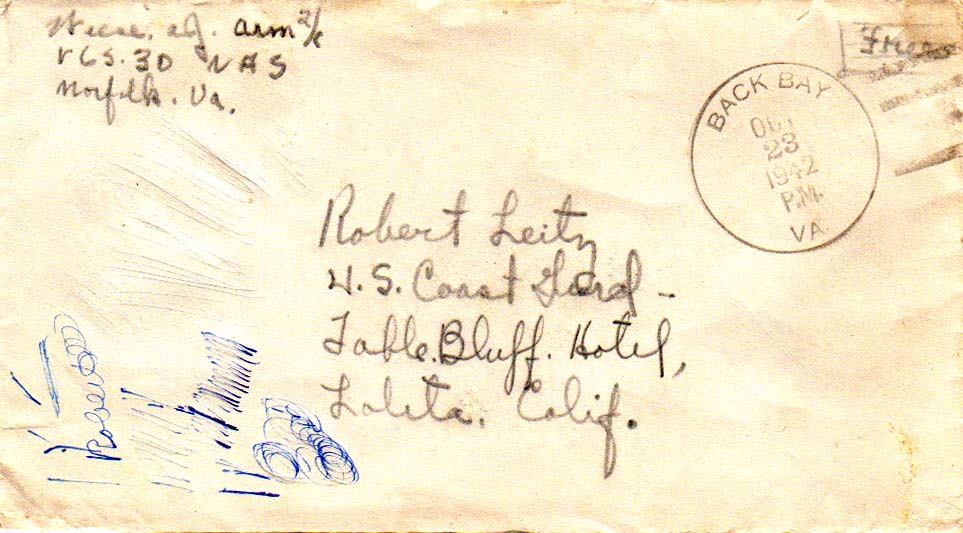 Weese, A.J. ARM 2/c
VGS. 30 NAS
Norfolk. Va.
Free
BACK BAY
OCT
23
1942
P.M.
VA
Robert Leitz
U.S. Coast Gard -
Table. Bluff. Hotel,
Loleta. Calif.
Robert